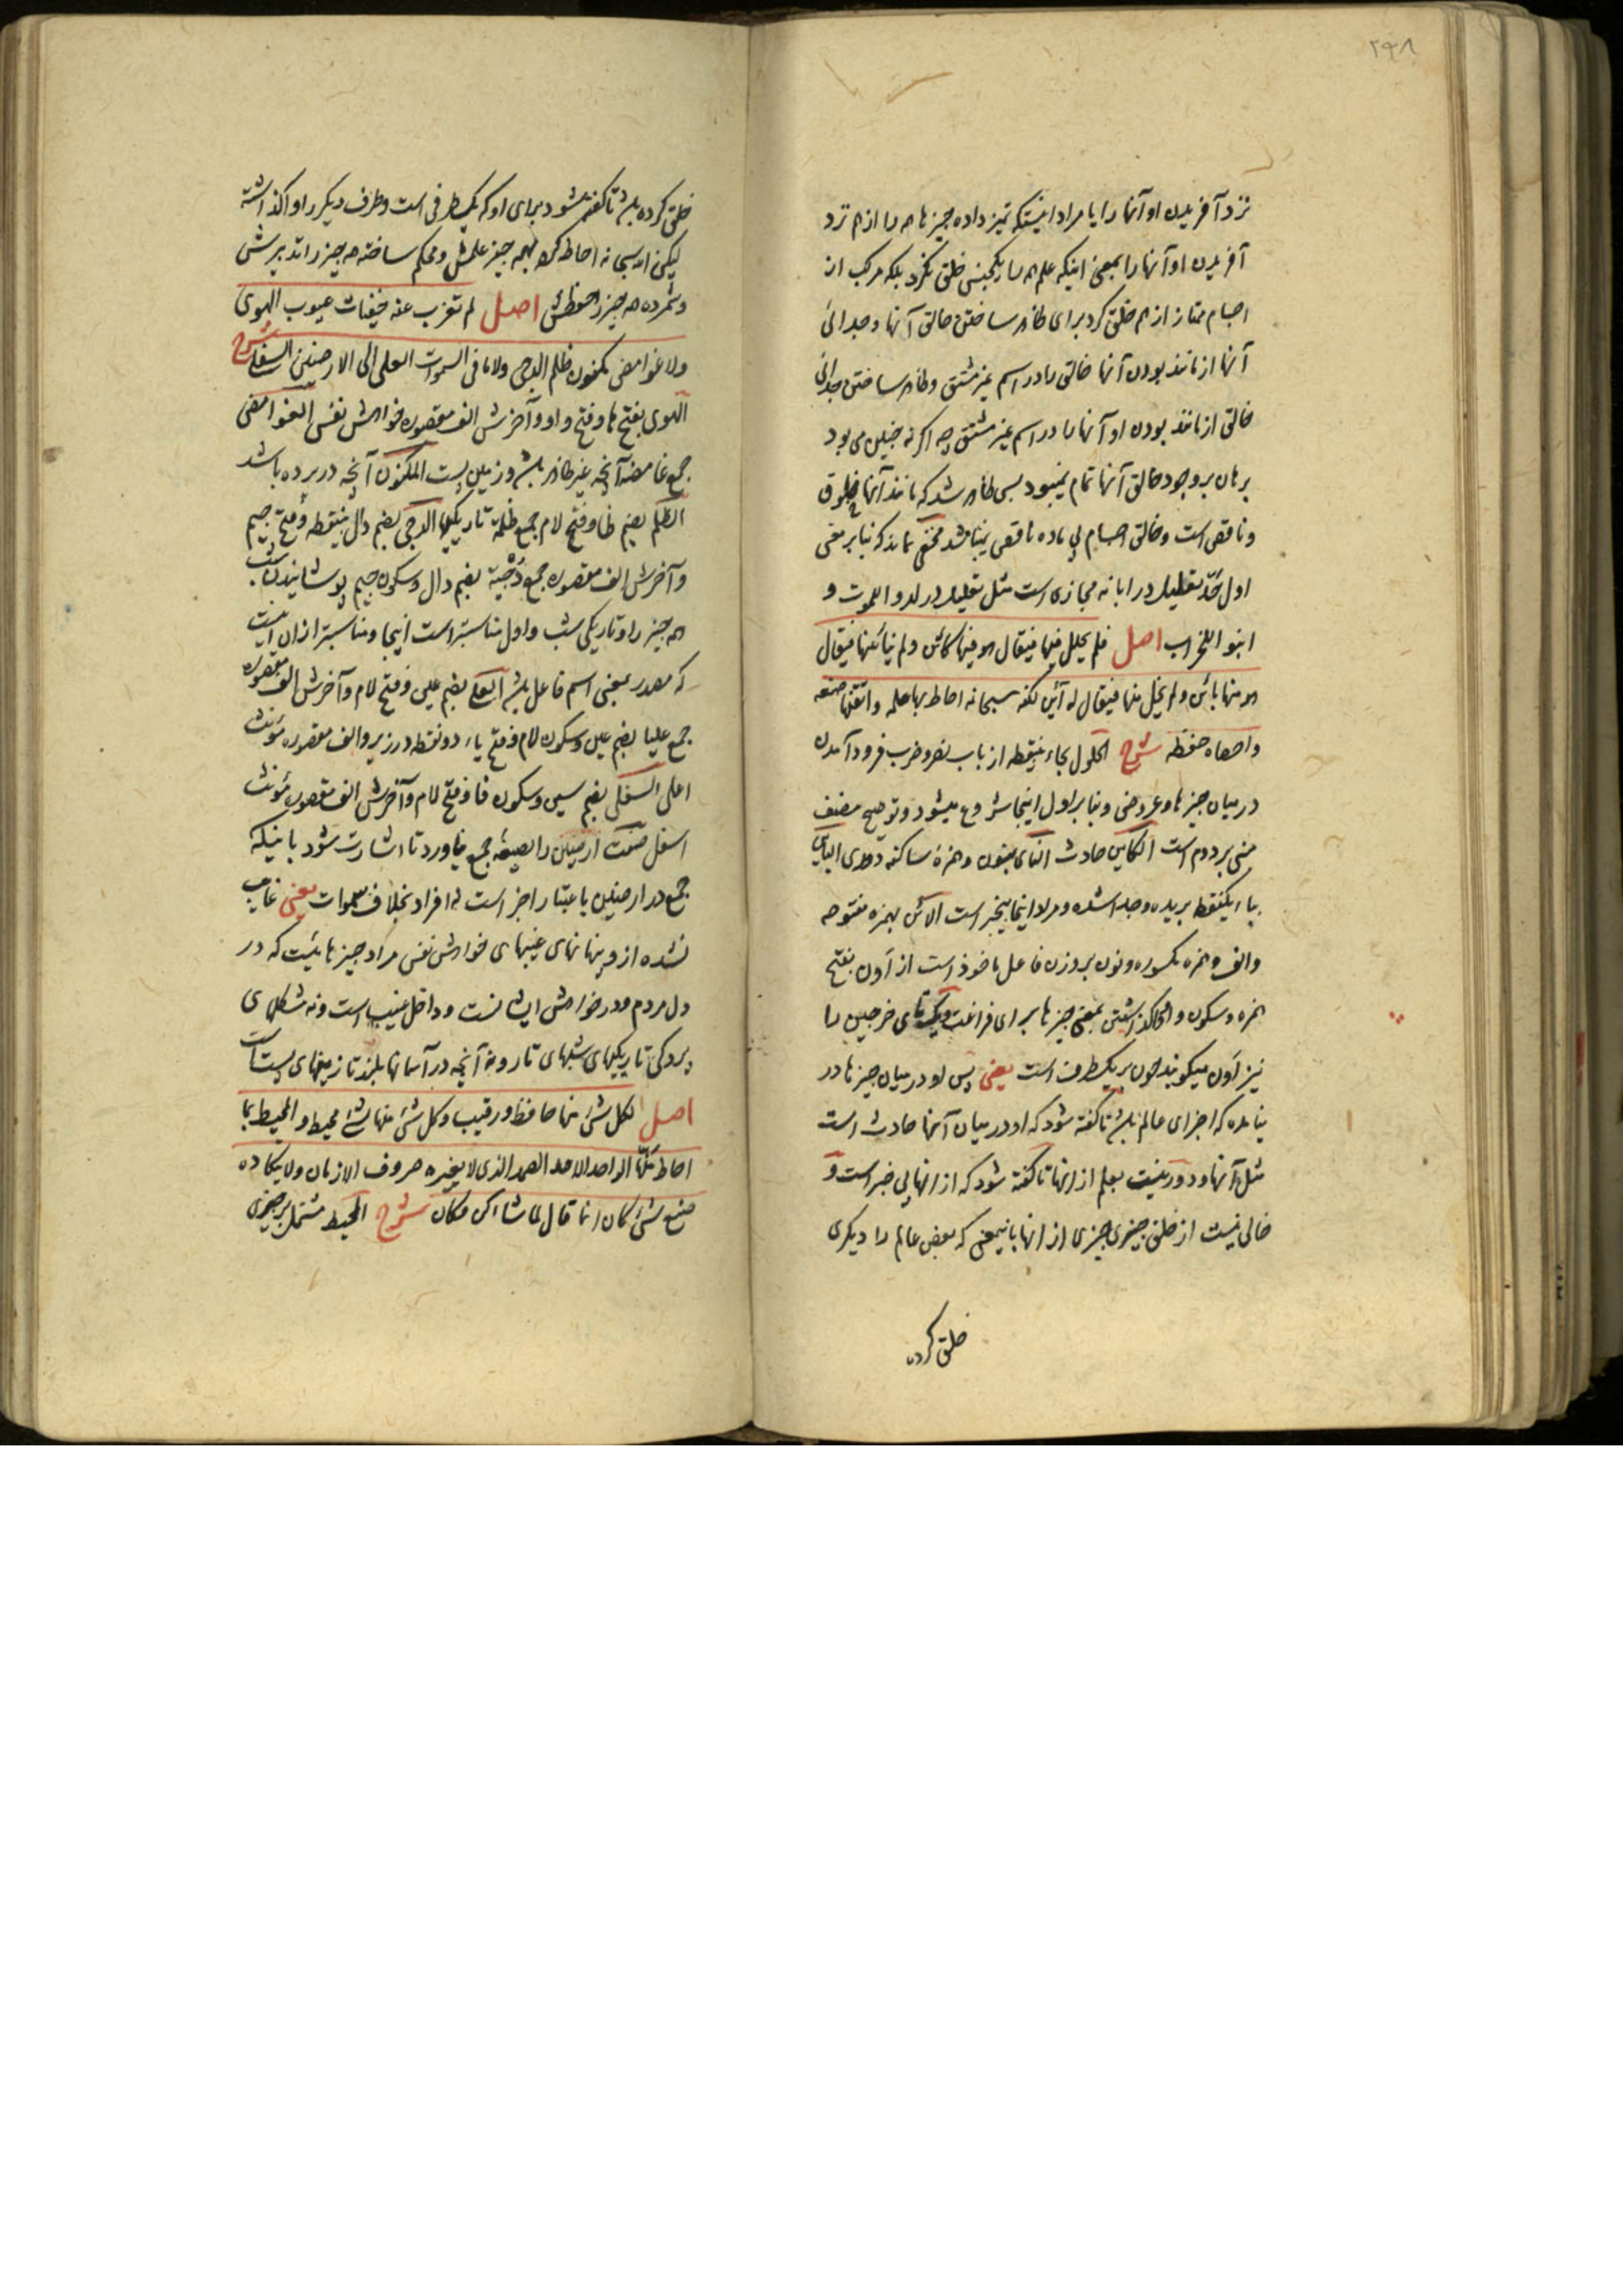 ۲۶۸
نزد آفریدن او آنها را یا مراد اینستکه تمیز داده چیزها همه را از هم نزد
آفریدن او آنها را بمعنی اینکه علم همه را یکجنس خلق نکرد بلکه مرکب از
اجسام ممتاز از هم خلق کرد برای ظاهر ساختن حالق آنها و جدائی
آنها از مانند بودن آنها خالق را در اسم غیر مشتق و ظاهر ساختن جدائی
خالق از مانند بودن او آنها را در اسم غیر مشتق چه اگر نه چنین می بود
برهان بر وجود خالق آنها تمام نمیبود پس ظاهر شد که مانند آنها مخلوق
و ناقص است و خالق اجسام بی ماده ناقص نمیباشد مخفی نماند که بنابر معنی
اول حَدَّ تعلیل در ابانه مجازی است مثل تعلیل در لدوا للموت و
ابنوا للخراب اصل فلم یحلل فیها فیقال هو فیها کائن ولم ینأ عنها فیقال
هو منها بائن ولم یخل منها فیقال له أین لکنه سبحانه احاط بها علمه واتقنها صنعه
واحصاه حفظه شرح الحلول بحاء بینقطه از باب نصر و ضرب فرود آمدن
در میان چیزها و عروض و بنابر اول اینجا شروع میشود و توضیح مصنف
مبنی بر دوم است الکاین حادث النأی بنون و همزهٔ ساکنه دوری الباین
بباء یکنقطه بریده و جدا شده و مراد اینجا بیخبر است الآئن بهمزه مفتوحه
والف و همزه مکسوره و نون بر وزن فاعل ماخوذ است از أَون بفتح
همزه و سکون واو واگذاشتن بعضی چیزها برای فراغت و یکتای خرجین را
نیز أَون میگویند چون بر یکطرف است یعنی پس او در میان چیزها در
نیامده که اجزای عالم باشد تا گفته شود که او در میان آنها حادث است
مثل آنها و دور نیست بعلم از انها تا گفته شود که از انها بی خبر است و
خالی نیست از خلق چیزی چیزی از انها باینمعنی که بعض عالم را دیگری
خلق کرده
خلق کرده باشد تا گفته شود برای او که یکطرفی است و طرف دیگر را واگذاشته
لیکن او سبحانه احاطه کرده بهمه چیز علمش و محکم ساخته همه چیز را تدبیرش
و شمرده همه چیز را حفظش اصل لم تعزب عنه خفیات غیوب الهوی
ولا غوامض مکنون ظلم الدجی ولا ما فی السموات العلی الی الارضین السفلی شرح
الهوی بفتح ها و فتح واو و آخرش الف مقصوره خواهش نفس الغوامض
جمع غامضه آنچه غیر ظاهر باشد و زمین پست المکنون آنچه در پرده باشد
الظلم بضم ظا و فتح لام جمع ظلمة تاریکیها الدجی بضم دال بینقطه و فتح جیم
و آخرش الف مقصوره جمع دُجْیَة بضم دال و سکون جیم پوشانیدن شب
همه چیز را و تاریکی شب و اول مناسبتر است اینجا و مناسبتر ازان اینست
که مصدر بمعنی اسم فاعل باشد العلی بضم عین و فتح لام و آخرش الف مقصوره
جمع علیا بضم عین و سکون لام و فتح یاء دو نقطه در زیر و الف مقصوره مؤنث
اعلی السفلی بضم سین و سکون فا و فتح لام و آخرش الف مقصوره مؤنث
اسفل صفت ارضین را بصیغه جمع نیاورد تا اشارت شود باینکه
جمع در ارضین باعتبار اجزا است نه افراد بخلاف سموات یعنی غایب
نشده از و پنهانهای غیبهای خواهش نفس مراد چیزهائیست که در
دل مردم و در خواهش ایشانست و داخل غیب است و نه مشکلهای
پردگی تاریکیهای شبهای تار و نه آنچه در آسمانها بلند تا زمینهای پست است
اصل لکل شئ منها حافظ و رقیب وکل شئ منها بشئ محیط والمحیط بما
احاط منها الواحد الاحد الصمد الذی لا یغیره صروف الازمان ولا یتکأده
صنع شئ کان انما قال لما شاء کن فکان شرح المحیط مشتمل بر چیزی